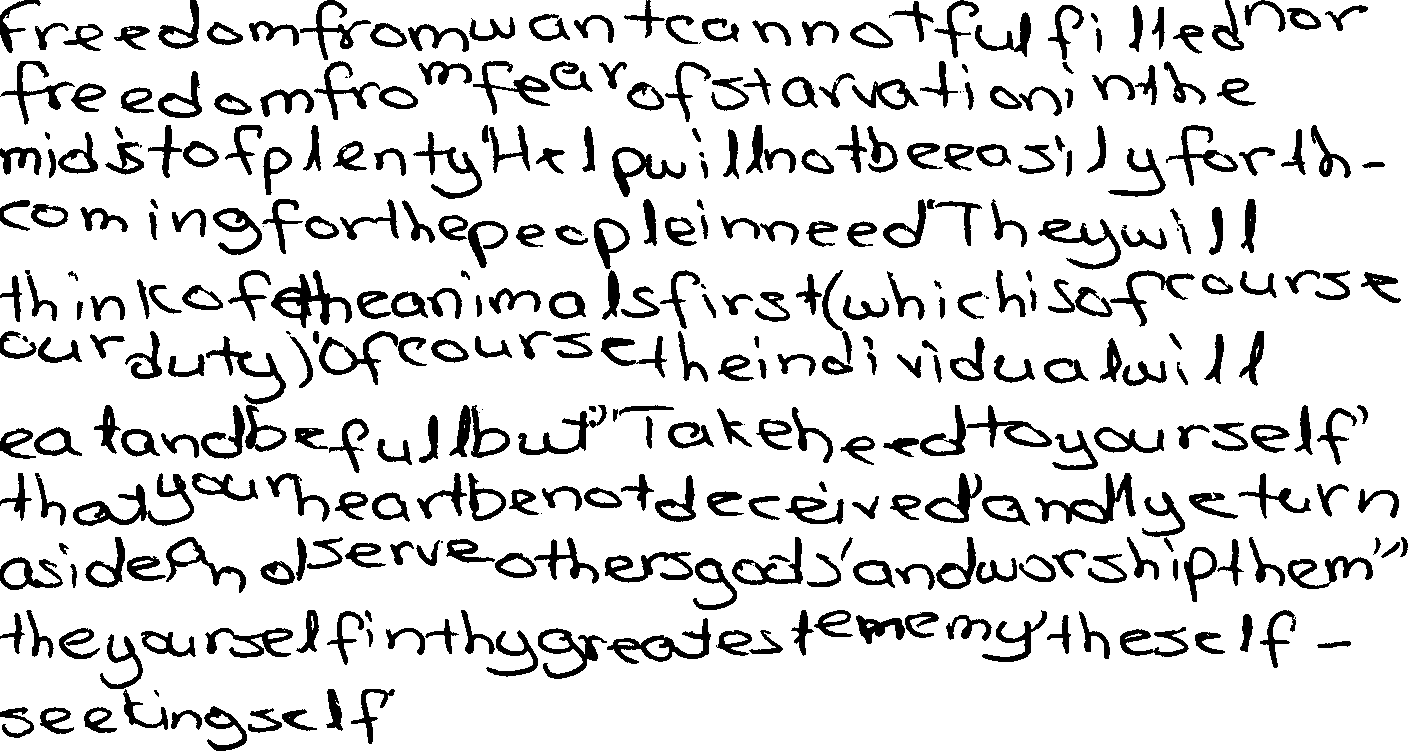 Freedom from want cannot fulfilled nor
freedom from fear of starvation in the
midst of plenty "Help will not be easily forth-
coming for the people in need" They will
think of the animals first (which is of course
our duty)" Of course the individual will
eat and be full but" "Take heed to yourself'
that your heart be not deceived' and "ye turn
aside and serve others gods' and worship them"
the yourself in thy greatest ememy' the self-
seeking self'